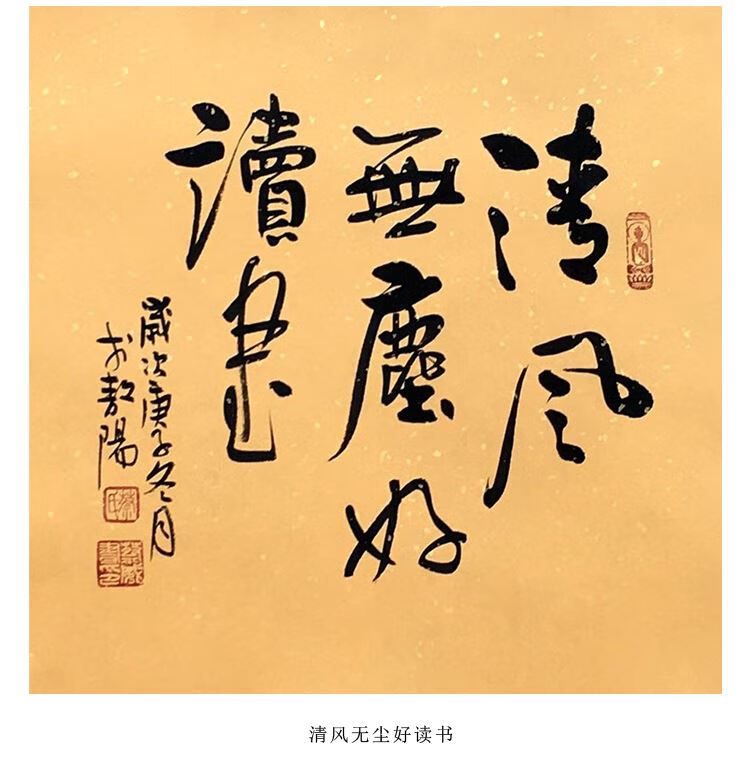 清風
無塵好
讀書
歲次庚子冬月
於敖陽
清风无尘好读书